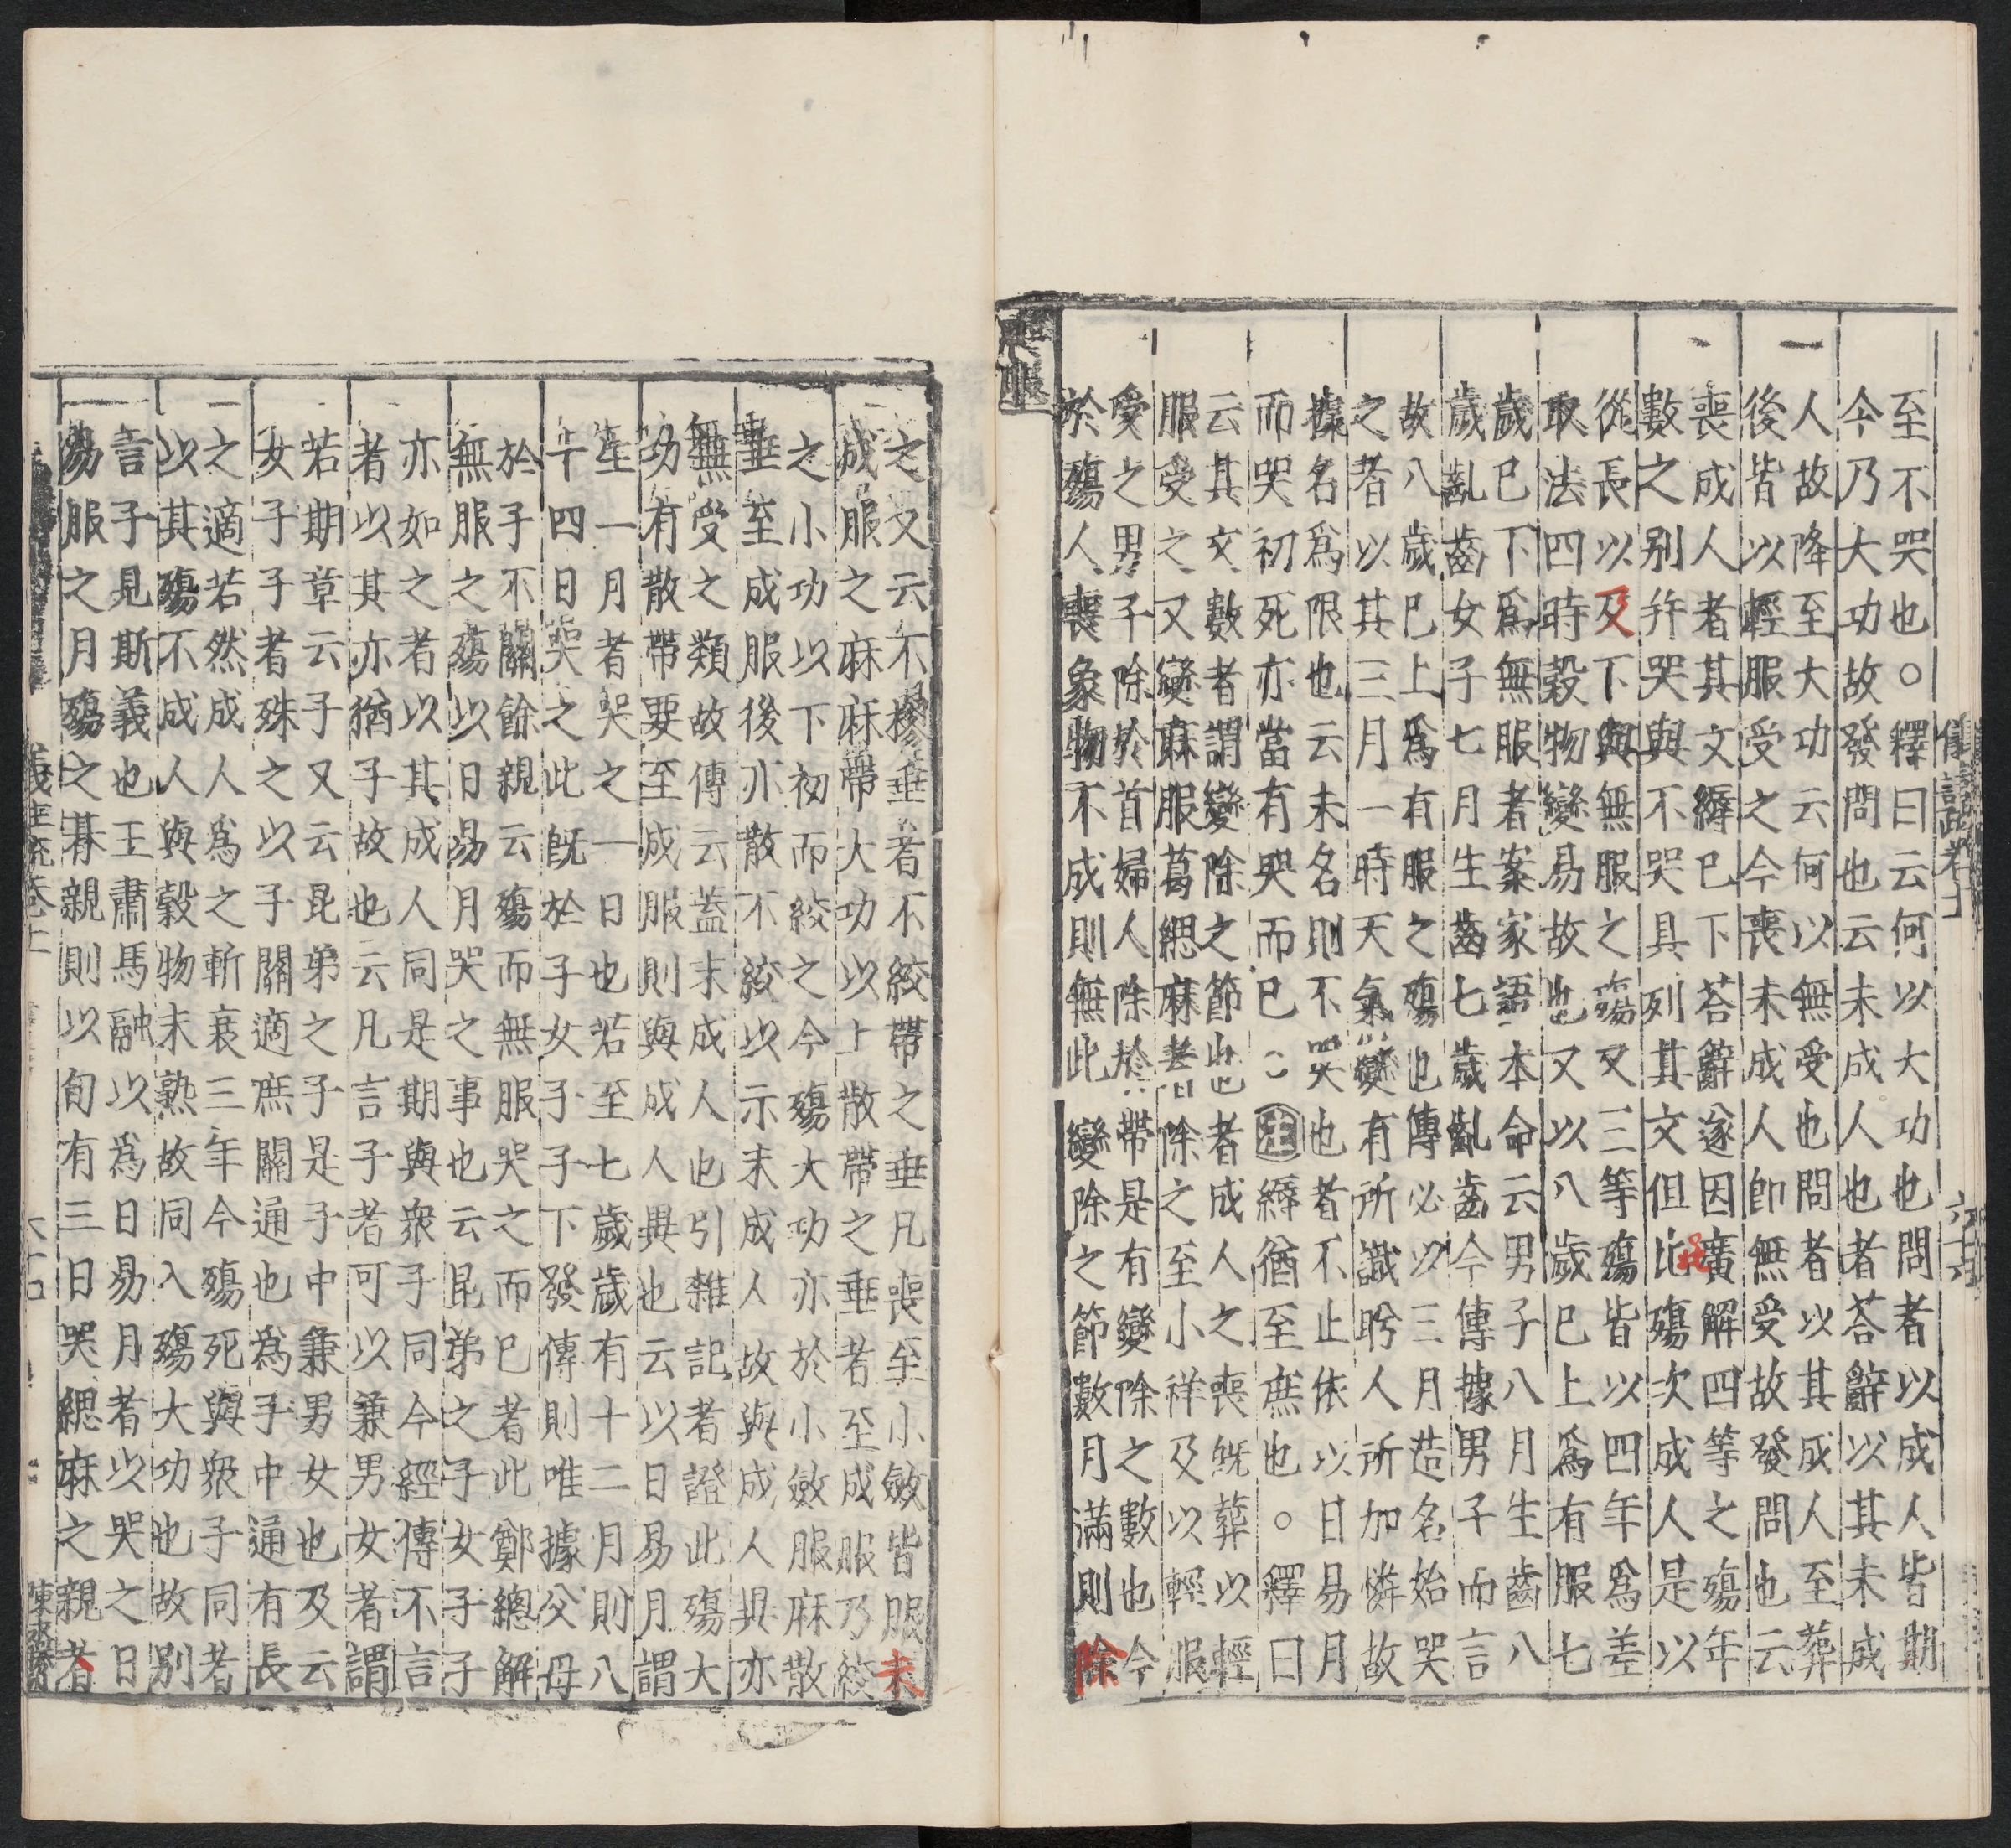 至不哭也○釋曰云何以大功也問者以成人皆期
今乃大功故發問也云未成人也者荅辭以其未成
人故降至大功云何以無受也問者以其成人至葬
後皆以輕服受之今喪未成人卽無受故發問也云
喪成人者其文縟巳下荅辭遂因廣解四等之殤年
數之别并哭與不哭具列其文但此殤次成人是以
從長以及下與無服之殤又三等殤皆以四年爲差
取法四時穀物變易故也又以八歲巳上爲有服七
歲巳下爲無服者案家語本命云男子八月生齒八
歲齓齒女子七月生齒七歲齓齒今傳據男子而言
故八歲巳上爲有服之殤也傳必以三月造名始哭
之者以其三月一時天氣變有所識眄人所加憐故
據名爲限也云未名則不哭也者不止依以日易月
而哭初死亦當有哭而巳 注縟猶至庶也○釋曰
云其文數者謂變除之節也者成人之喪旣葬以輕
服受之又變麻服葛緦麻者除之至小祥又以輕服
受之男子除於首婦人除於帶是有變除之數也今
於殤人喪象物不成則無此變除之節數月滿則除
喪服
儀禮疏卷十一
六十六
之又云不樛垂者不絞帶之垂凡喪至小斂皆服未
成服之麻麻帶大功以上散帶之垂者至成服乃絞
之小功以下初而絞之今殤大功亦於小斂服麻散
垂至成服後亦散不絞以示未成人故與成人異亦
無受之類故傳云蓋未成人也引雜記者證此殤大
功有散帶要至成服則與成人異也云以日易月謂
生一月者哭之一日也若至七歲歲有十二月則八
十四日哭之此旣於子女子子下發傳則唯據父母
於子不關餘親云殤而無服哭之而巳者此鄭總解
無服之殤以日易月哭之事也云昆弟之子女子子
亦如之者以其成人同是期與衆子同今經傳不言
者以其亦猶子故也云凡言子者可以兼男女者謂
若期章云子又云昆弟之子是子中兼男女也又云
女子子者殊之以子關適庶關通也爲子中通有長
之適若然成人爲之斬衰三年今殤死與衆子同者
以其殤不成人與穀物未熟故同入殤大功也故别
言子見斯義也王肅馬融以爲日易月者以哭之日
易服之月殤之朞親則以旬有三日哭緦麻之親者